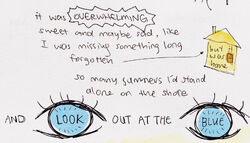 it was OVERWHELMING
sweet and maybe sad, like
I was missing something long
forgotten
but it
was
home
so many summers I'd stand
alone on the shore
AND LOOK OUT AT THE BLUE